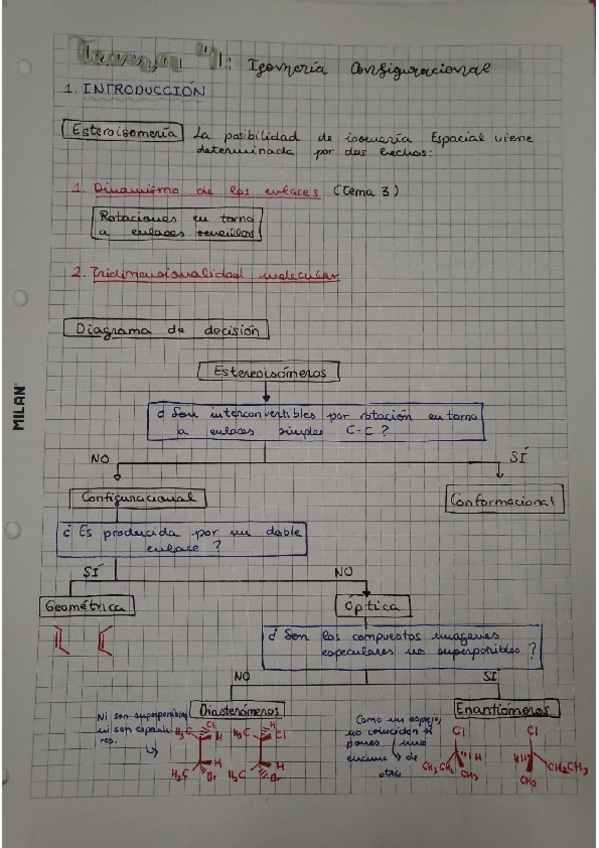 : Isomería Configuracional
1. INTRODUCCIÓN
Esteroisomería La posibilidad de isomería Espacial viene
determinada por dos hechos:
1. Dinamismo de los enlaces (tema 3)
Rotaciones en torno
a enlaces sencillos
2. Tridimensionalidad molecular
Diagrama de decisión
Estereoisómeros
¿Son interconvertibles por rotación en torno
a enlaces simples C-C?
NO SÍ
Configuracional Conformacional
¿Es producida por un doble
enlace?
SÍ NO
Geométrica Óptica
¿Son los compuestos imágenes
especulares no superponibles?
NO SÍ
Diasterómeros Enantiómeros
Ni son superponibles
ni son especula
res.
Como un espejo,
no coinciden si
pones uno
encima de
otro
Cl H
H₃C H H₃C Cl
H H
H₃C Br H₃C Br
Cl Cl
H H
CH₃CH₂ CH₃ CH₃ CH₂CH₃
MILAN